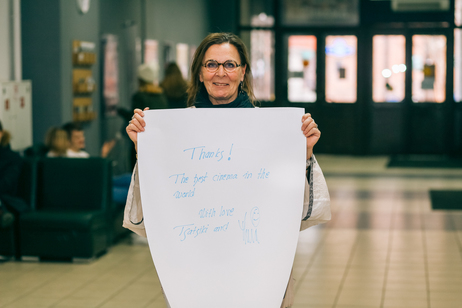 Thanks!
The best cinema in the
world
With love
and